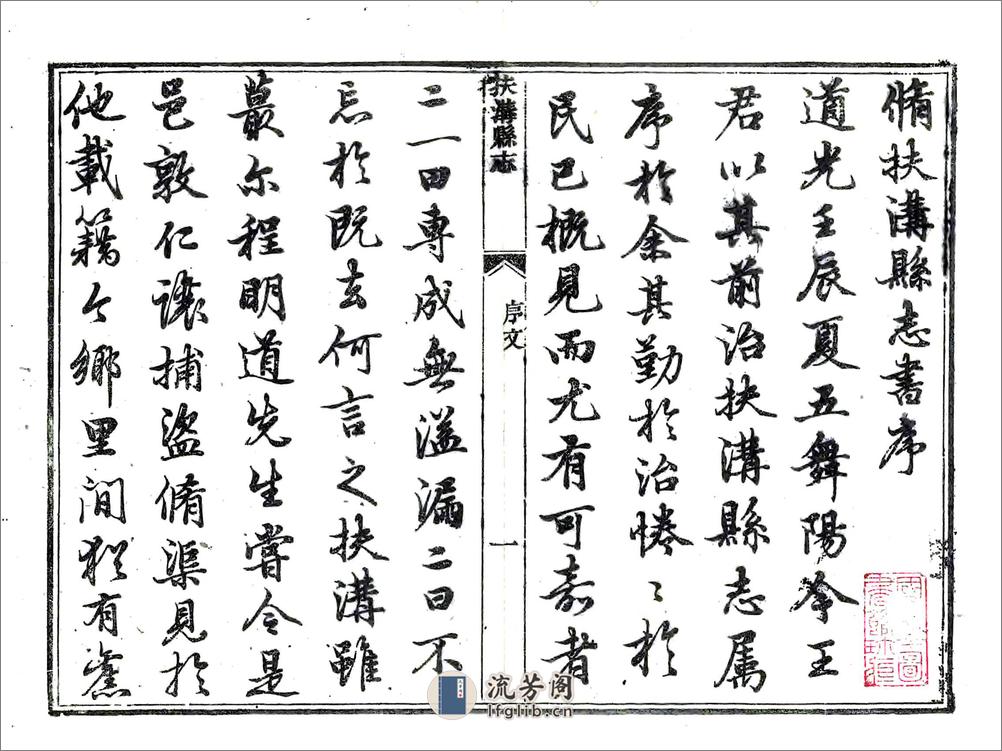 脩扶溝縣志書序
道光壬辰夏五舞陽令王
君以其前治扶溝縣志属
序於余其勤於治惓〻於
民已概見而尤有可嘉者
扶溝縣志
序文
一
二一曰專成無溢漏二曰不
忘於既去何言之扶溝雖
蕞尔程明道先生嘗令是
邑敦仁讓捕盜脩渠見於
他載籍今鄉里間猶有
流芳阁
lfglib.cn